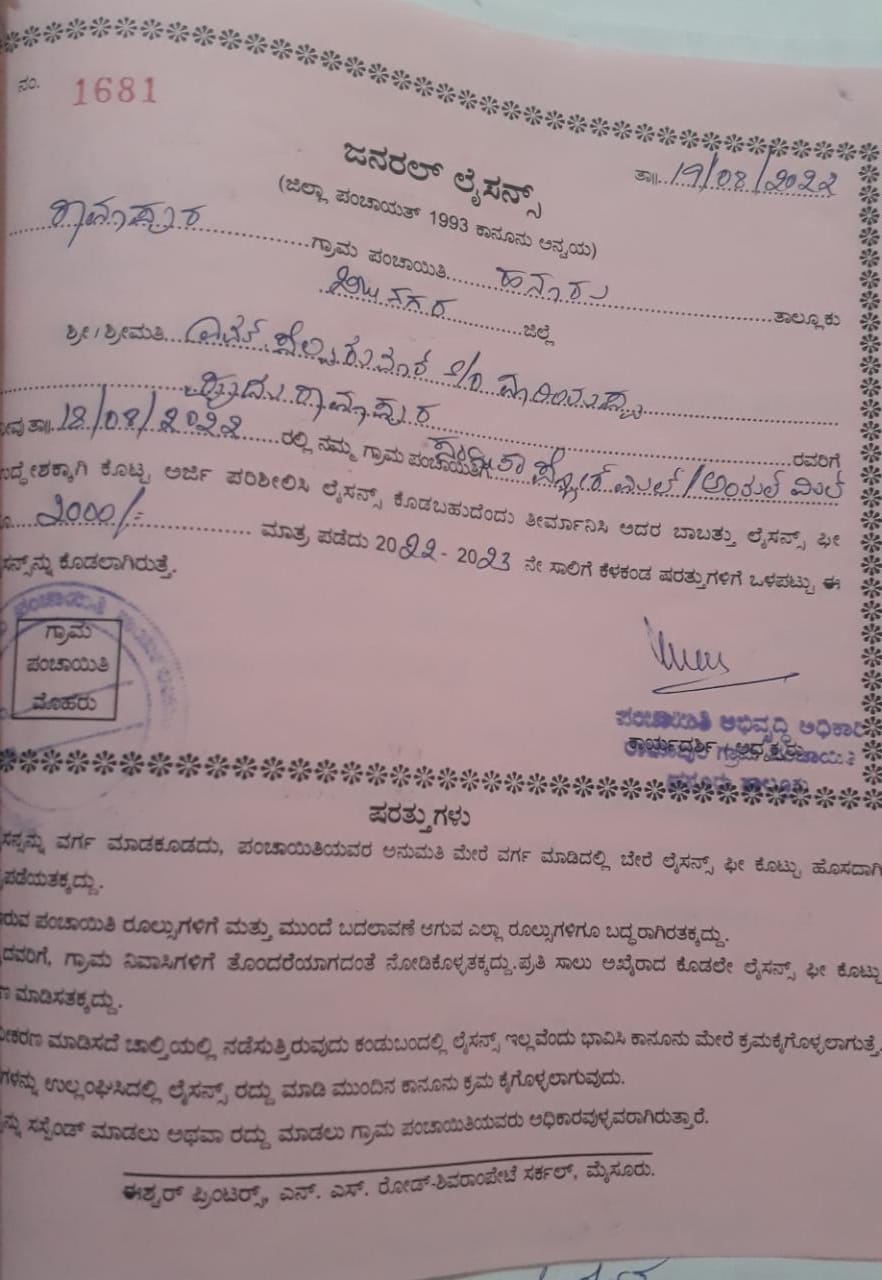 ನಂ. 1681
ಜನರಲ್ ಲೈಸನ್ಸ್
ತಾ॥ 19/08/2022
(ಜಿಲ್ಲಾ ಪಂಚಾಯತ್ 1993 ಕಾನೂನು ಅನ್ವಯ)
ರಾಮಾಪುರ ಗ್ರಾಮ ಪಂಚಾಯಿತಿ ಹನೂರು ತಾಲ್ಲೂಕು
ಜಿಲ್ಲೆ
ಶ್ರೀ / ಶ್ರೀಮತಿ
ರಾಮಾಪುರ ರವರಿಗೆ
ತಾ॥ 18/08/2022 ರಲ್ಲಿ ನಮ್ಮ ಗ್ರಾಮ ಪಂಚಾಯಿತಿಗೆ
ಉದ್ದೇಶಕ್ಕಾಗಿ ಕೊಟ್ಟ ಅರ್ಜಿ ಪರಿಶೀಲಿಸಿ ಲೈಸನ್ಸ್ ಕೊಡಬಹುದೆಂದು ತೀರ್ಮಾನಿಸಿ ಅದರ ಬಾಬತ್ತು ಲೈಸನ್ಸ್ ಫೀ
2000/- ಮಾತ್ರ ಪಡೆದು 2022 - 2023 ನೇ ಸಾಲಿಗೆ ಕೆಳಕಂಡ ಷರತ್ತುಗಳಿಗೆ ಒಳಪಟ್ಟು ಈ
ಸನ್ಸ್‌ನ್ನು ಕೊಡಲಾಗಿರುತ್ತೆ.
ಗ್ರಾಮ
ಪಂಚಾಯಿತಿ
ಮೊಹರು
ಪಂಚಾಯಿತಿ ಅಭಿವೃದ್ಧಿ ಅಧಿಕಾರಿ
ಕಾರ್ಯದರ್ಶಿ / ಅಧ್ಯಕ್ಷರು
ಷರತ್ತುಗಳು
ವರ್ಗ ಮಾಡಕೂಡದು, ಪಂಚಾಯಿತಿಯವರ ಅನುಮತಿ ಮೇರೆ ವರ್ಗ ಮಾಡಿದಲ್ಲಿ ಬೇರೆ ಲೈಸನ್ಸ್ ಫೀ ಕೊಟ್ಟು ಹೊಸದಾಗಿ
ಪಡೆಯತಕ್ಕದ್ದು.
ಪಂಚಾಯಿತಿ ರೂಲ್ಸುಗಳಿಗೆ ಮತ್ತು ಮುಂದೆ ಬದಲಾವಣೆ ಆಗುವ ಎಲ್ಲಾ ರೂಲ್ಸುಗಳಿಗೂ ಬದ್ಧರಾಗಿರತಕ್ಕದ್ದು.
ಗ್ರಾಮ ನಿವಾಸಿಗಳಿಗೆ ತೊಂದರೆಯಾಗದಂತೆ ನೋಡಿಕೊಳ್ಳತಕ್ಕದ್ದು. ಪ್ರತಿ ಸಾಲು ಅಖೈರಾದ ಕೂಡಲೇ ಲೈಸನ್ಸ್ ಫೀ ಕೊಟ್ಟು
ಮಾಡಿಸತಕ್ಕದ್ದು.
ಮಾಡಿಸದೆ ಚಾಲ್ತಿಯಲ್ಲಿ ನಡೆಸುತ್ತಿರುವುದು ಕಂಡುಬಂದಲ್ಲಿ ಲೈಸನ್ಸ್ ಇಲ್ಲವೆಂದು ಭಾವಿಸಿ ಕಾನೂನು ಮೇರೆ ಕ್ರಮಕೈಗೊಳ್ಳಲಾಗುತ್ತೆ.
ಗಳನ್ನು ಉಲ್ಲಂಘಿಸಿದಲ್ಲಿ ಲೈಸನ್ಸ್ ರದ್ದು ಮಾಡಿ ಮುಂದಿನ ಕಾನೂನು ಕ್ರಮ ಕೈಗೊಳ್ಳಲಾಗುವುದು.
ಸಸ್ಪೆಂಡ್ ಮಾಡಲು ಅಥವಾ ರದ್ದು ಮಾಡಲು ಗ್ರಾಮ ಪಂಚಾಯಿತಿಯವರು ಅಧಿಕಾರವುಳ್ಳವರಾಗಿರುತ್ತಾರೆ.
ಈಶ್ವರ್ ಪ್ರಿಂಟರ್ಸ್, ಎನ್. ಎಸ್. ರೋಡ್-ಶಿವರಾಂಪೇಟೆ ಸರ್ಕಲ್, ಮೈಸೂರು.